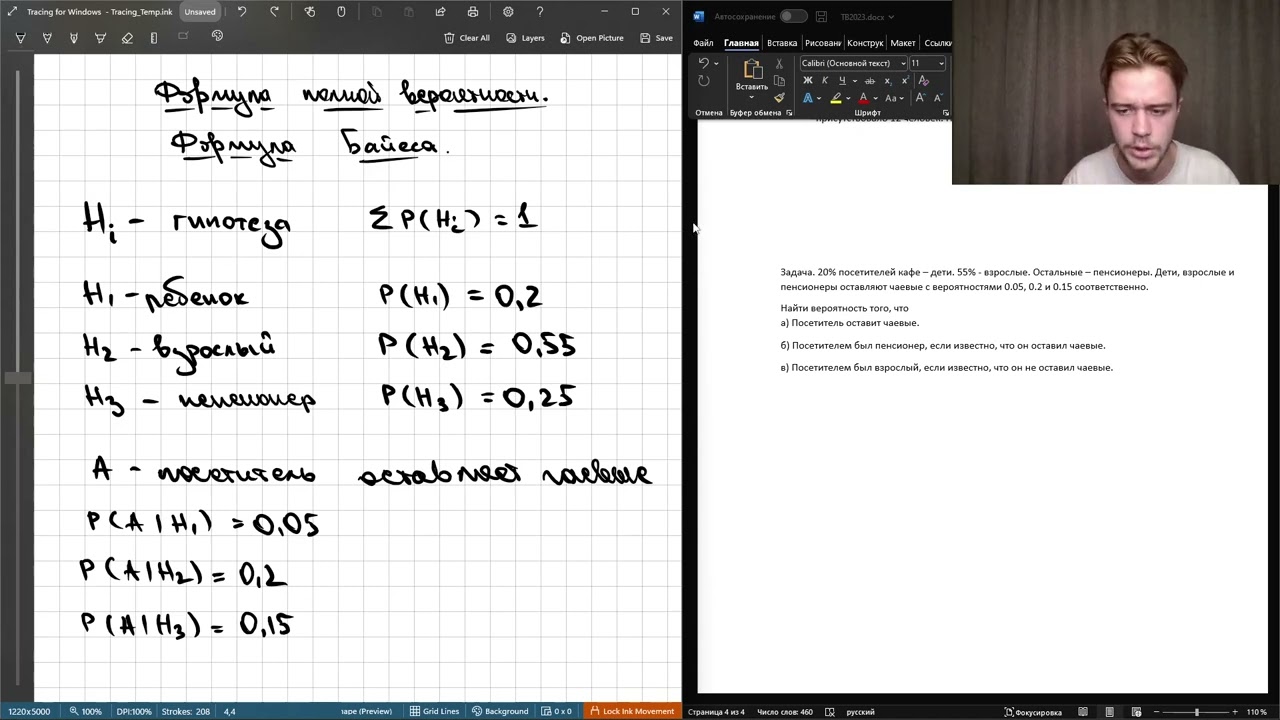 Tracing for Windows - Tracing_Temp.ink Unsaved
Clear All Layers Open Picture Save
Формула полной вероятности.
Формула Байеса.
Hi - гипотеза Σ P(Hi) = 1
H1 - ребенок P(H1) = 0,2
H2 - взрослый P(H2) = 0,55
H3 - пенсионер P(H3) = 0,25
A - посетитель оставляет чаевые
P(A|H1) = 0,05
P(A|H2) = 0,2
P(A|H3) = 0,15
1220x5000 100% DPI:100% Strokes: 208 4,4 hape (Preview) Grid Lines Background 0 x 0 Lock Ink Movement
Автосохранение TB2023.docx
Файл Главная Вставка Рисовани Конструк Макет Ссылки
Вставить Calibri (Основной текст) 11
Ж К Ч ab x₂ x² A
A A Aa A A
Отмена Буфер обмена Шрифт
присутствовало 12 человек.
Задача. 20% посетителей кафе – дети. 55% - взрослые. Остальные – пенсионеры. Дети, взрослые и
пенсионеры оставляют чаевые с вероятностями 0.05, 0.2 и 0.15 соответственно.
Найти вероятность того, что
а) Посетитель оставит чаевые.
б) Посетителем был пенсионер, если известно, что он оставил чаевые.
в) Посетителем был взрослый, если известно, что он не оставил чаевые.
Страница 4 из 4 Число слов: 460 русский Фокусировка 110 %